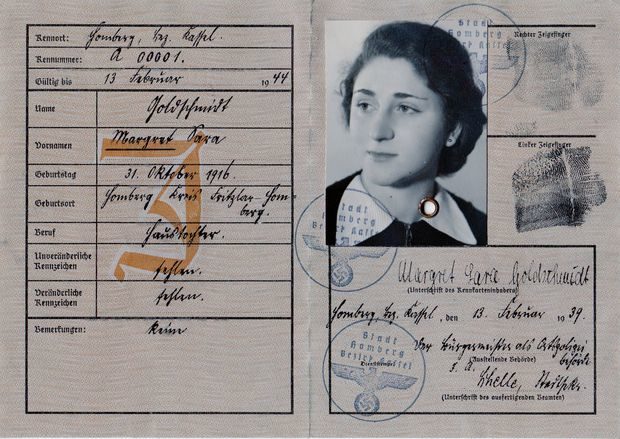 Kennort: Homberg, Bez. Kassel.
Kennummer: A 00001.
Gültig bis 13 Februar 1944
Name Goldschmidt
Vornamen Margret Sara
Geburtstag 31. Oktober 1916.
Geburtsort Homberg Kreis Fritzlar-Hom-
berg.
Beruf Haustochter.
Unveränderliche
Kennzeichen fehlen.
Veränderliche
Kennzeichen fehlen.
Bemerkungen: Keine
J
Stadt
Homberg
Bezirk Kassel
Rechter Zeigefinger
Linker Zeigefinger
Stadt
Homberg
Bezirk Kassel
Margret Sara Goldschmidt
(Unterschrift des Kennkarteninhabers)
Homberg, Bez. Kassel, den 13. Februar 1939.
Der Bürgermeister als Ortspolizei
behörde
(Ausstellende Behörde)
J. A.
(Unterschrift des ausfertigenden Beamten)
Stadt
Homberg
Bezirk Kassel
Dienststempel